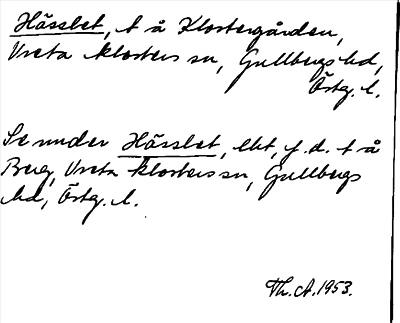 Hässlet, t å Klostergården,
Vreta klosters sn, Gullbergs hd,
Östg. l.
Se under Hässlet, lht, f.d. t å
Berg, Vreta klosters sn, Gullbergs
hd, Östg. l.
Th. A. 1953.